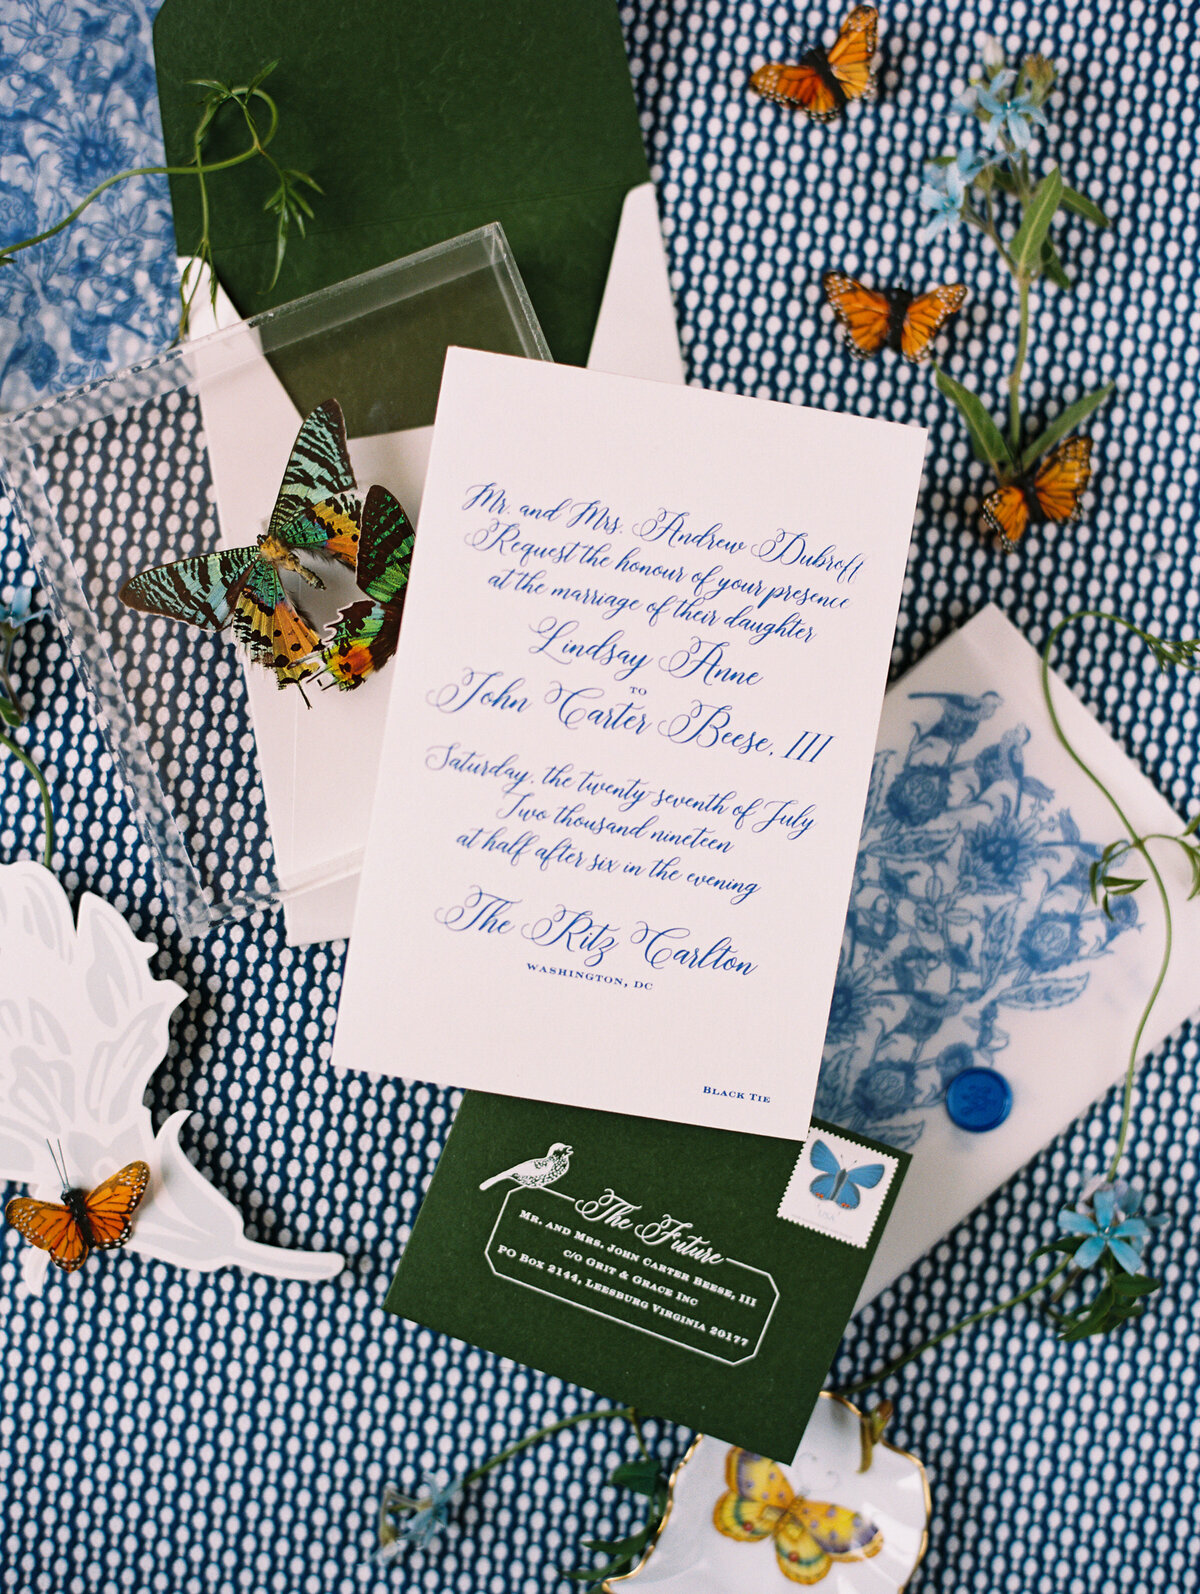 Mr. and Mrs. Andrew Dubroft
Request the honour of your presence
at the marriage of their daughter
Lindsay Anne
TO
John Carter Beese, III
Saturday, the twenty-seventh of July
Two thousand nineteen
at half after six in the evening
The Ritz Carlton
WASHINGTON, DC
BLACK TIE
The Future
MR. AND MRS. JOHN CARTER BEESE, III
C/O GRIT & GRACE INC
PO BOX 2144, LEESBURG VIRGINIA 20177
USA